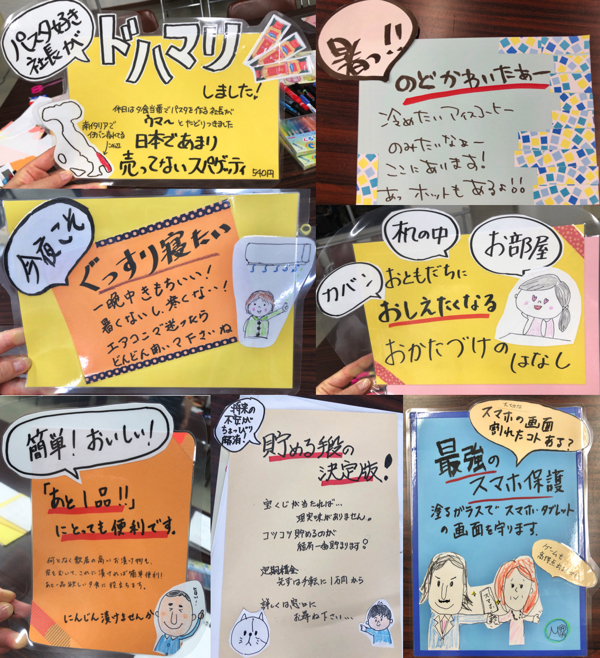 パスタ好き
社長が
ドハマリ
しました!
休日は夕食当番でパスタを作る社長が
ウマ〜とたどりつきました
南イタリアで
日本であまり
売ってないスパゲッティ
540円
暑っ!!
のどかわいたぁー
冷めたいアイスコーヒー
のみたいなぁー
ここにあります!
あっホットもあるよ!!
今夜こそ
ぐっすり寝たい
一晩中きもちいい!
暑くないし、寒くない!
エアコンで迷ったら
どんどん聞いて下さいね
カバン
机の中
お部屋
おともだちに
おしえたくなる
おかたづけのはなし
簡単!おいしい!
「あと1品!!」
にとっても便利です。
にんじん漬けませんか
将来の
不安が
ちょっぴり
解消!
貯める手段の
決定版!
宝くじが当たれば…
現実味がありません。
コツコツ貯めるのが
結局一番貯まります!
定期積金
先ずは手軽に1万円から
詳しくは窓口に
お尋ね下さい…
スマホの画面
割れたコトある?
最強の
スマホ保護
塗るガラスでスマホ・タブレット
の画面を守ります。